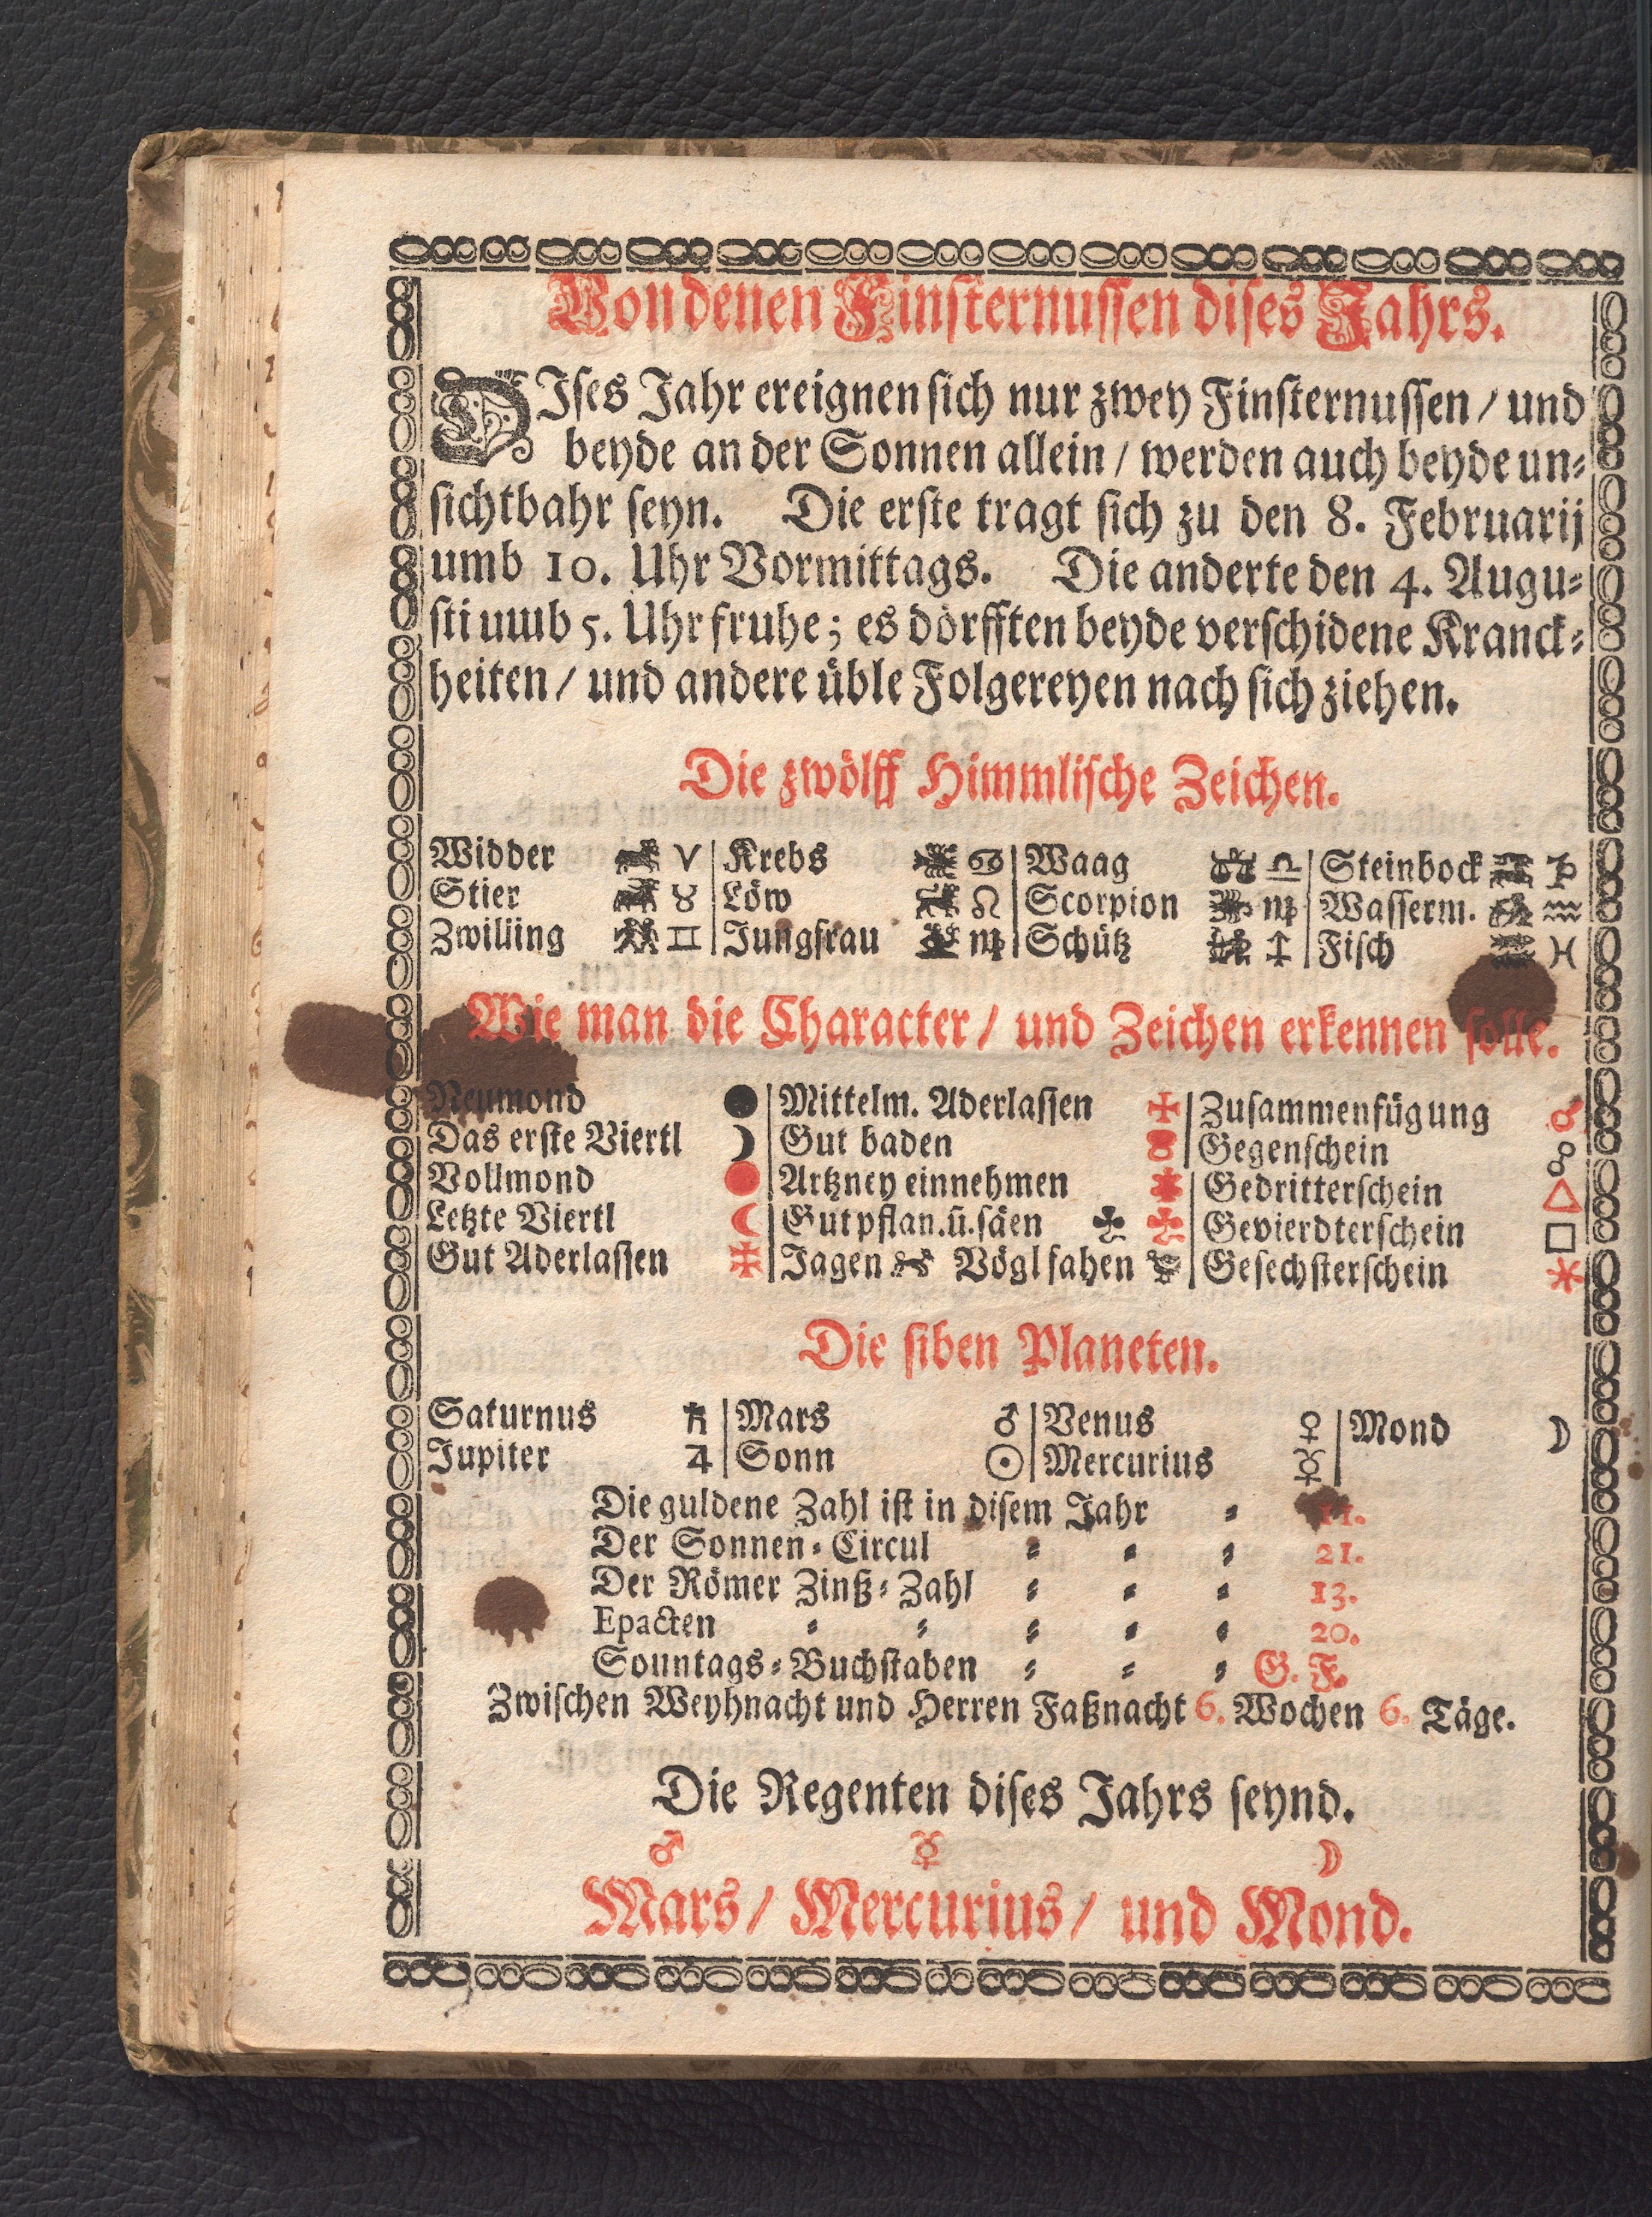 Von denen Finsternussen dises Jahrs.
DIses Jahr ereignen sich nur zwey Finsternussen / und
beyde an der Sonnen allein / werden auch beyde un=
sichtbahr seyn. Die erste tragt sich zu den 8. Februarij
umb 10. Uhr Vormittags. Die anderte den 4. Augu=
sti umb 5. Uhr fruhe; es dörfften beyde verschidene Kranck=
heiten / und andere üble Folgereyen nach sich ziehen.
Die zwölff Himmlische Zeichen.
Widder ♈ | Krebs ♋ | Waag ♎ | Steinbock ♑
Stier ♉ | Löw ♌ | Scorpion ♏ | Wasserm. ♒
Zwilling ♊ | Jungfrau ♍ | Schütz ♐ | Fisch ♓
Wie man die Character / und Zeichen erkennen solle.
Neumond ● | Mittelm. Aderlassen ✠ | Zusammenfügung ☌
Das erste Viertl ☽ | Gut baden | Gegenschein ☍
Vollmond ● | Artzney einnehmen | Gedritterschein △
Letzte Viertl ☾ | Gut pflan. ū. säen ♣ ♣ | Gevierdterschein □
Gut Aderlassen ✠ | Jagen Vögl fahen | Gesechsterschein ⚹
Die siben Planeten.
Saturnus ♄ | Mars ♂ | Venus ♀ | Mond ☽
Jupiter ♃ | Sonn ☉ | Mercurius ☿
Die guldene Zahl ist in disem Jahr = 11.
Der Sonnen = Circul = = = 21.
Der Römer Zinß = Zahl = = = 13.
Epacten = = = = = 20.
Sonntags = Buchstaben = = = G. F.
Zwischen Weyhnacht und Herren Faßnacht 6. Wochen 6. Täge.
Die Regenten dises Jahrs seynd.
♂ ☿ ☽
Mars / Mercurius / und Mond.